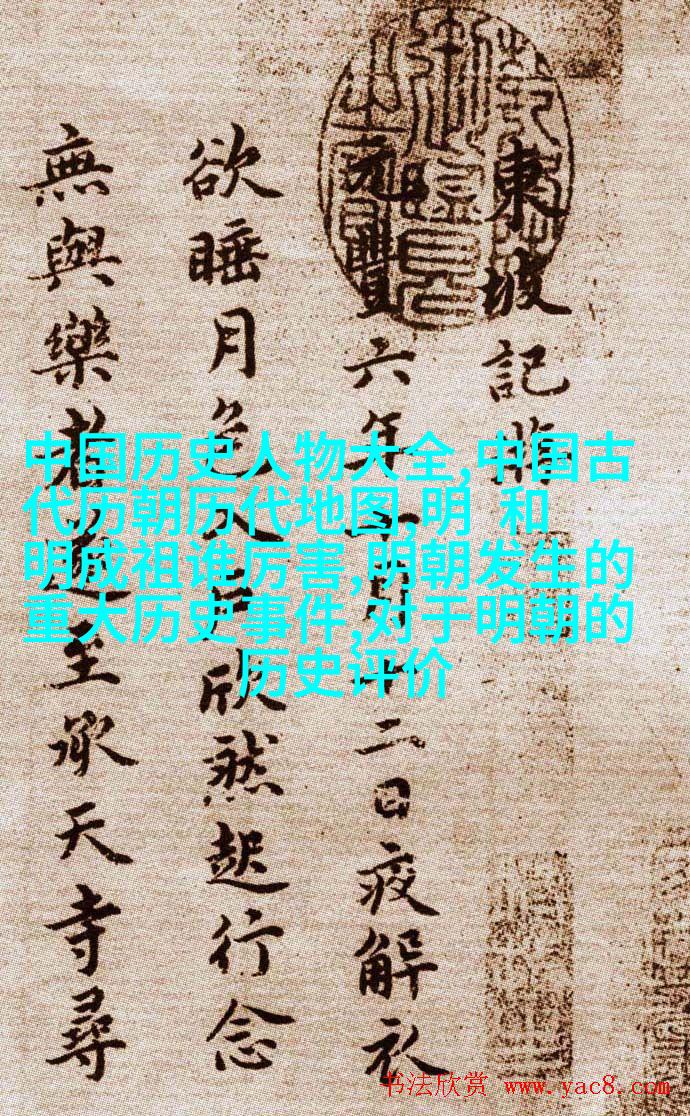 東坡記
元豐六年十月十二日夜解衣
欲睡月色入戶欣然起行念
無與樂者遂至承天寺尋
中国历史人物大全,中国古
代历朝历代地图,明 和
明成祖谁厉害,明朝发生的
重大历史事件,对于明朝的
历史评价
书法欣赏 www.yac8.com